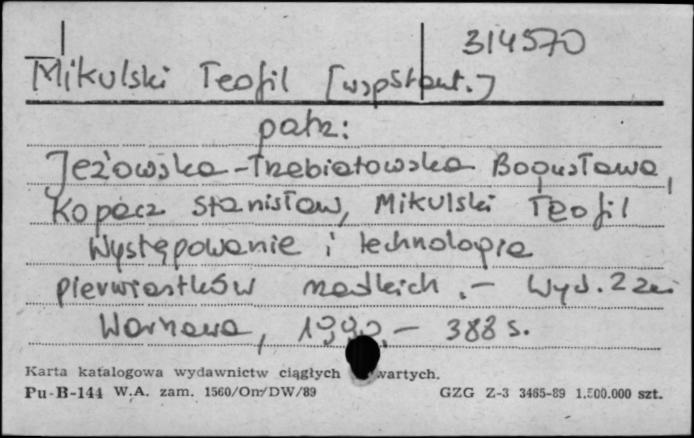 314570
Mikulski Teofil [współaut.]
patrz:
Jeżowska-Trzebiatowska Bogusława,
Kopacz Stanisław, Mikulski Teofil
Występowanie i technologia
pierwiastków rzadkich. – Wyd. 2 zm
Warszawa, 1990. – 388 s.
Karta katalogowa wydawnictw ciągłych wartych.
Pu-B-144 W.A. zam. 1560/Om/DW/89 GZG Z-3 3465-89 1.500.000 szt.